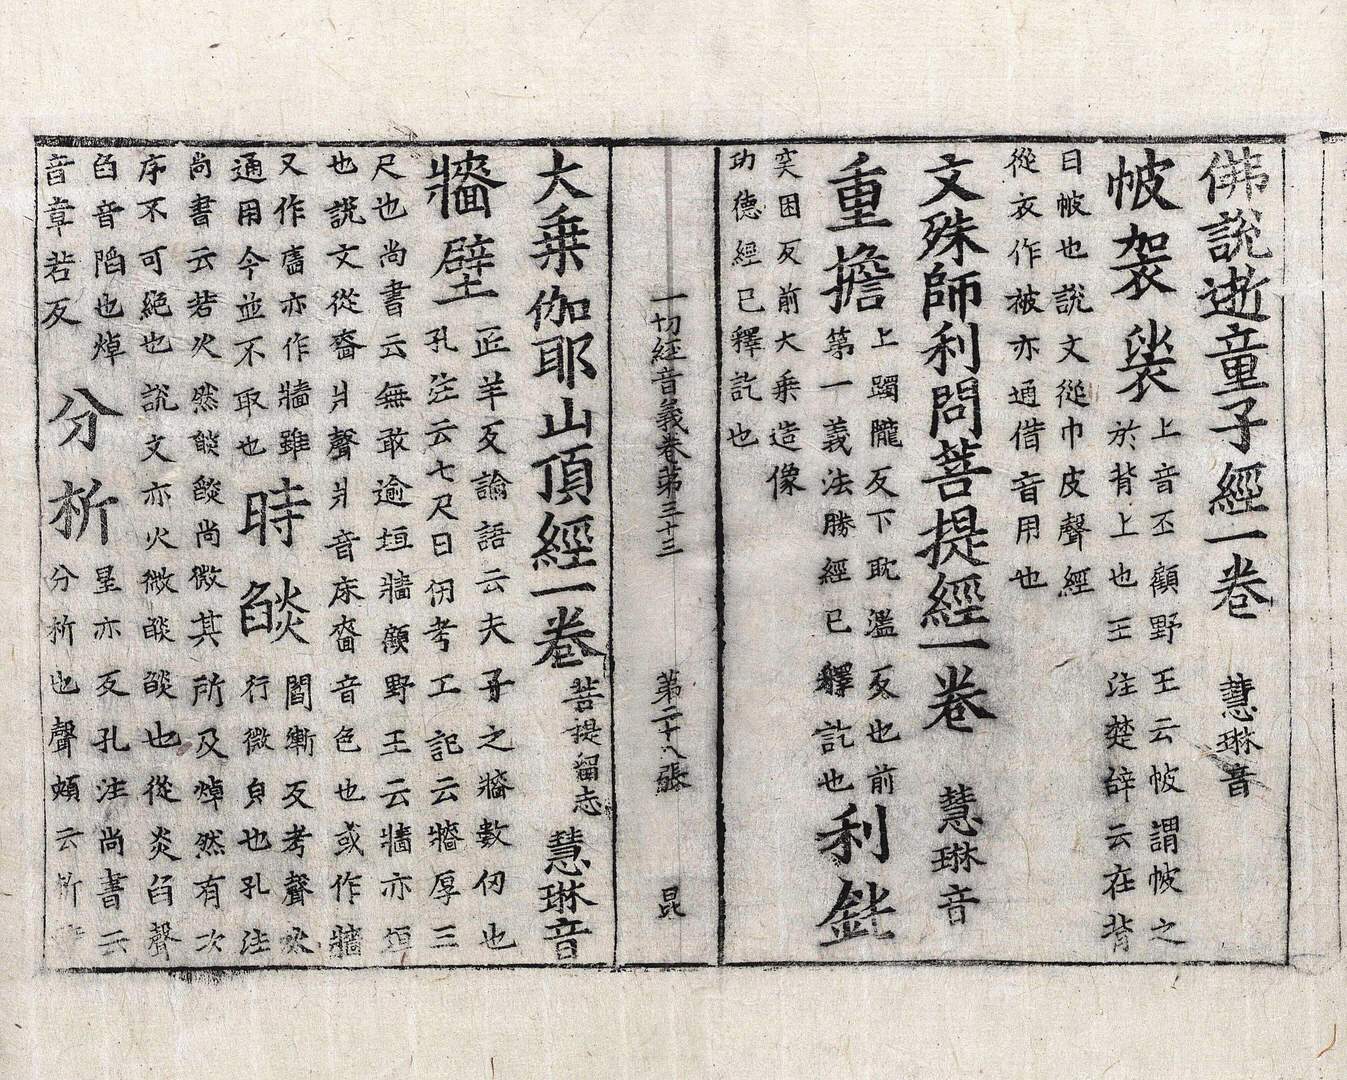 佛說逝童子經一卷 慧琳音
帔袈裟
上音丕顧野王云帔謂帔之
於背上也王注楚辞云在背
曰帔也說文從巾皮聲經
從衣作被亦通借音用也
文殊師利問菩提經一卷 慧琳音
重擔
上躅隴反下耽濫反也前
第一義法勝經已釋訖也
利
突困反前大乗造像
功德經已釋訖也
一切經音義卷第三十三 第二十八張 昆
大乗伽耶山頂經一卷 菩提留志 慧琳音
牆壁
匠羊反論語云夫子之牆數仞也
孔注云七尺曰仞考工記云牆厚三
尺也尚書云無敢逾垣牆顧野王云牆亦垣
也說文從嗇爿聲爿音床嗇音色也或作牆
又作廧亦作牆雖
通用今並不取也
時焰
閻漸反考聲火
行微皃也孔注
尚書云若火然焰焰尚微其所及焯然有次
序不可絶也說文亦火微焰焰也從炎臽聲
臽音陷也焯
音章若反
分析
星亦反孔注尚書云
分析也聲類云析